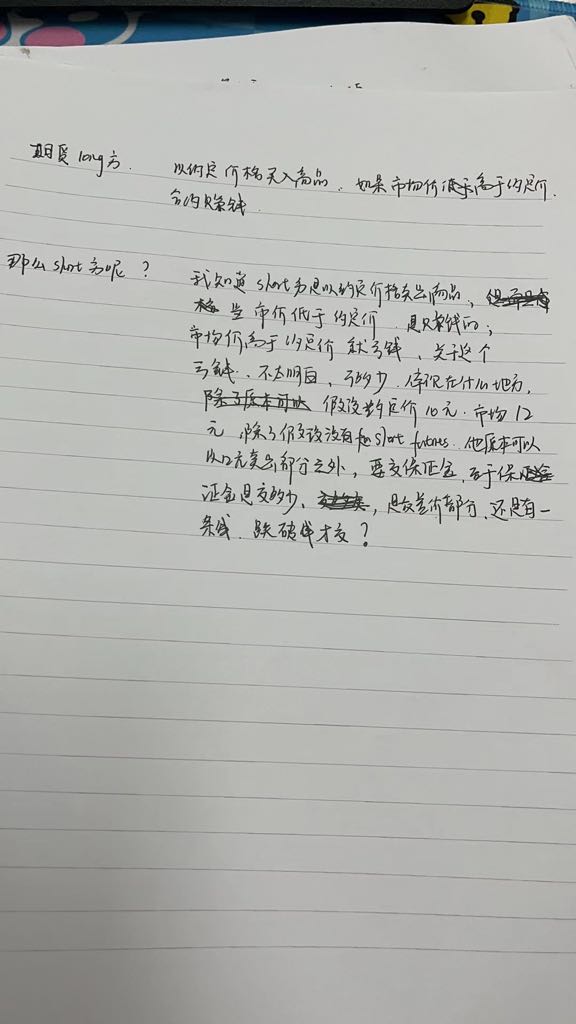 期货 long方. 以约定价格买入商品. 如果市场价高于约定价.
合约赚钱.
那么 short 方呢？ 我知道 short 方是以约定价格卖出商品,
当市价低于约定价 是赚钱的；
市场价高于约定价 就亏钱. 关于这个
亏钱. 不太明白. 亏多少. 体现在什么地方,
假设约定价 10元. 市场 12
元, 除了假设没有 short futures. 他原本可以
以12元卖出部分之外, 要交保证金, 至于保
证金是交多少, 是交差价部分, 还是有一
条线. 跌破线才交？